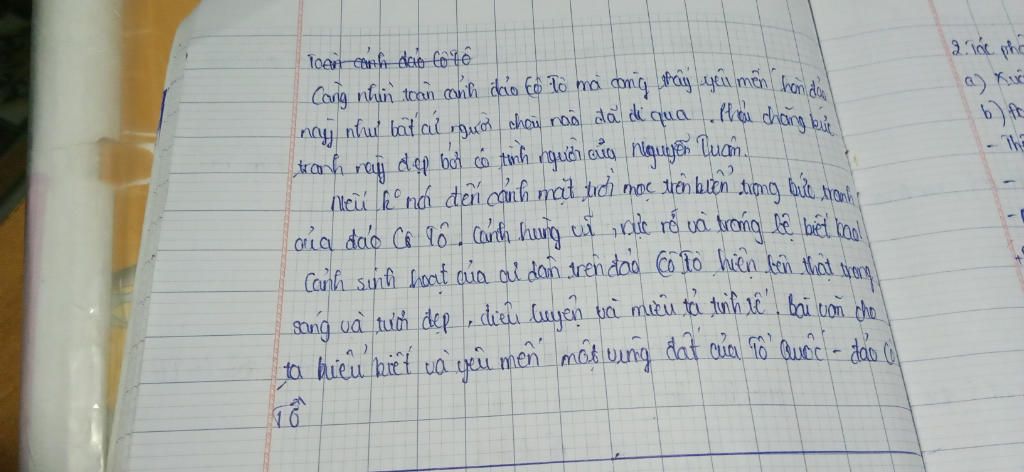 Toàn cảnh đảo Cô Tô
Càng nhìn toàn cảnh đảo Cô Tô mà càng thấy yêu mến hòn đảo
này như bất cứ người chài nào đã đi qua. Phải chăng bức
tranh này đẹp bởi có tình người của Nguyễn Tuân.
Nếu k° nói đến cảnh mặt trời mọc trên biển trong bức tranh
của đảo Cô Tô. Cảnh hùng vĩ, rực rỡ và tráng lệ biết bao!
Cảnh sinh hoạt của cư dân trên đảo Cô Tô hiện lên thật trong
sáng và tươi đẹp, điêu luyện và miêu tả tinh tế. bài văn cho
ta hiểu biết và yêu mến một vùng đất của Tổ Quốc - đảo Cô
Tô
2. Tác
a)
b)